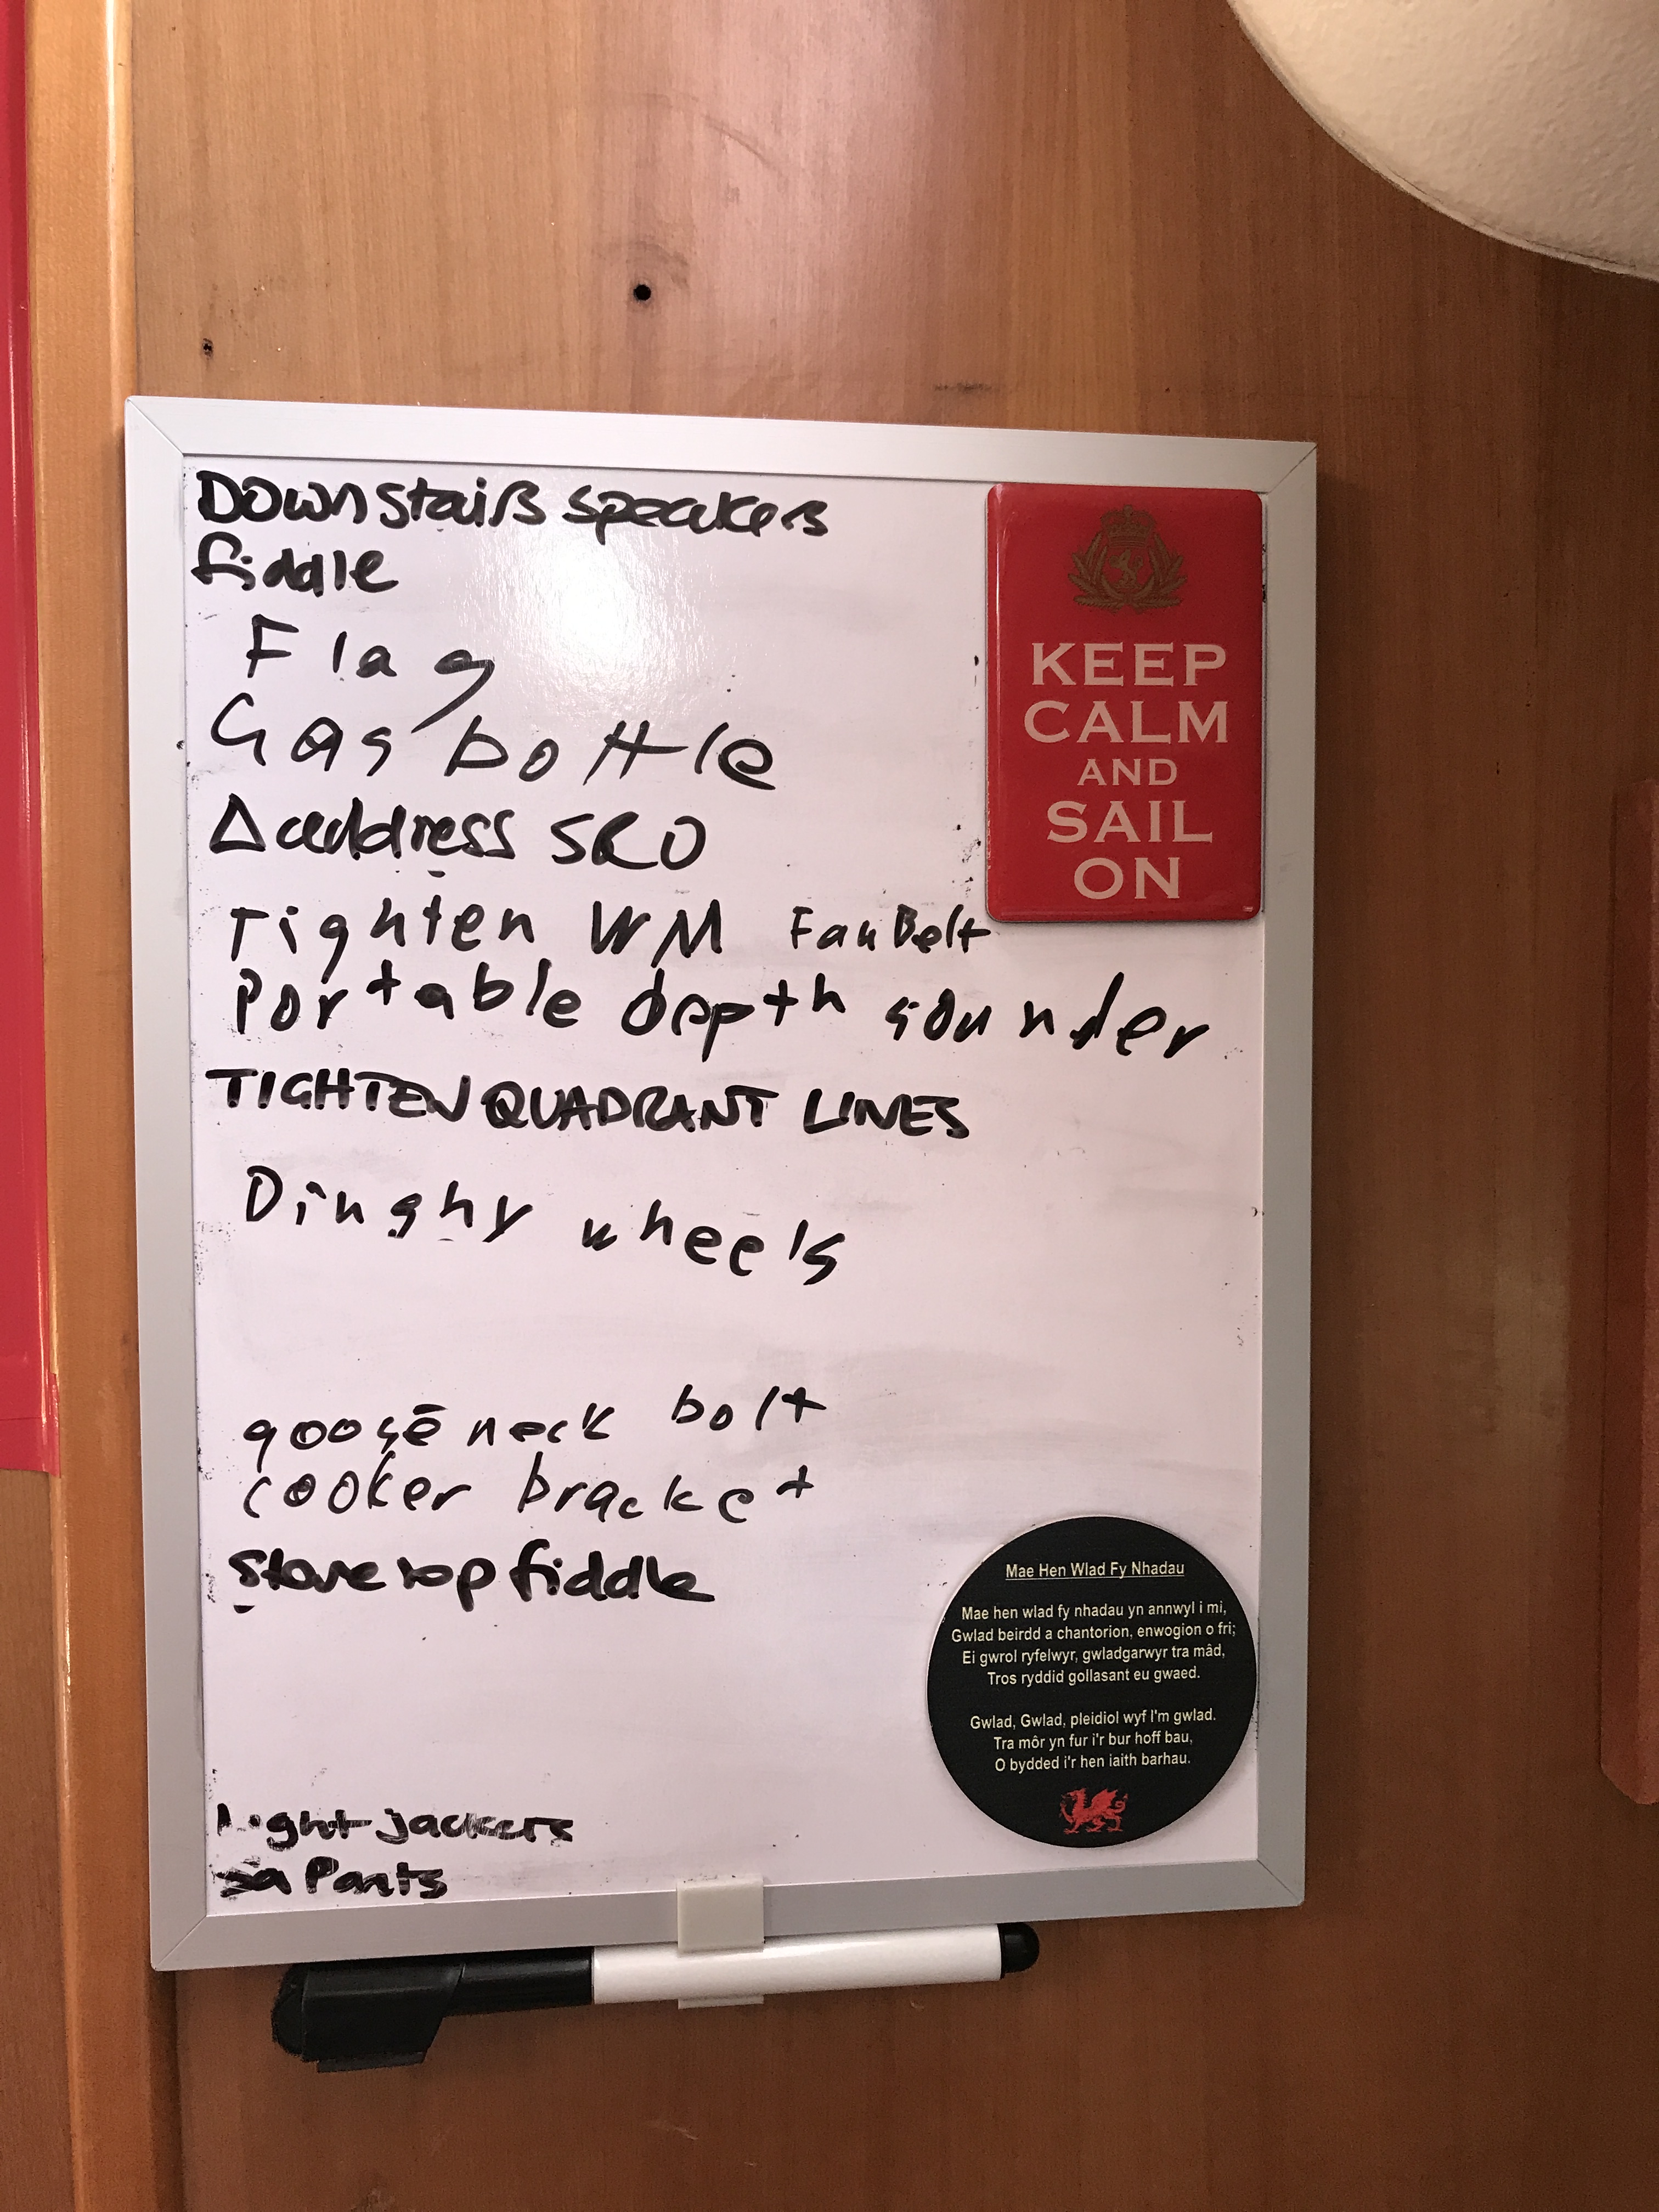 Downstairs speakers
fiddle
Flag
Gas bottle
Δ address SRO
Tighten WM Fan Belt
Portable depth sounder
TIGHTEN QUADRANT LINES
Dinghy wheels
goose neck bolt
cooker bracket
Stove top fiddle
Light jackets
Pants
KEEP
CALM
AND
SAIL
ON
Mae Hen Wlad Fy Nhadau
Mae hen wlad fy nhadau yn annwyl i mi,
Gwlad beirdd a chantorion, enwogion o fri;
Ei gwrol ryfelwyr, gwladgarwyr tra mâd,
Tros ryddid gollasant eu gwaed.
Gwlad, Gwlad, pleidiol wyf I'm gwlad.
Tra môr yn fur i'r bur hoff bau,
O bydded i'r hen iaith barhau.